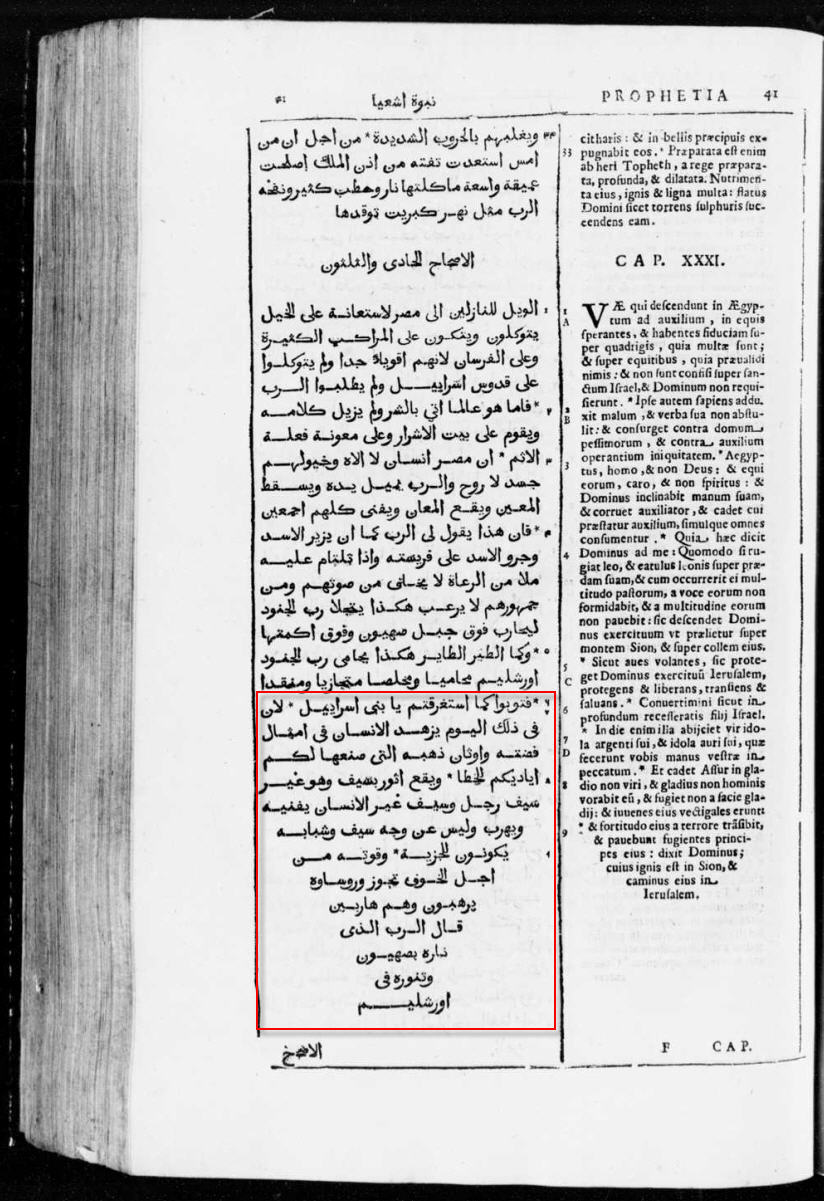 ٤١ نبوة اشعيا
PROPHETIA 41
٣٣ ويغلبهم بالحروب الشديدة * من اجل ان من
امس استعدت تفته من اذن الملك اصلحت
عميقة واسعة ماكلتها نار وحطب كثير ونفخه
الرب مثل نهر كبريت توقدها
الاصحاح الحادى والثلثون
١ الويل للنازلين الى مصر لاستعانة على الخيل
يتوكلون ويتكون على المراكب الكثيرة
وعلى الفرسان لانهم اقوياء جدا ولم يتوكلوا
على قدوس اسراييل ولم يطلبوا الرب
٢ * فاما هو عالما اتي بالشر ولم يزيل كلامه
ويقوم على بيت الاشرار وعلى معونة فعلة
٣ الاثم * ان مصر انسان لا الاه وخيولهم
جسد لا روح والرب يميل يده ويسقط
المعين ويقع المعان ويفنى كلهم اجمعين
٤ * فان هذا يقول لى الرب كما ان يزير الاسد
وجرو الاسد على فريسته واذا تلتام عليه
ملا من الرعاة لا يخاف من صوتهم ومن
جمهورهم لا يرعب هكذا ينحلا رب الجنود
ليحارب فوق جبل صهيون وفوق اكمتها
٥ * وكما الطير الطاير هكذا يحامى رب الجنود
اورشليم محاميا ومخلصا متجازيا ومنقدا
٦ * فتوبوا كما استغرقتم يا بنى اسراييل * لان
٧ فى ذلك اليوم يزهد الانسان فى امثال
فضته واوثان ذهبه التى صنعها لكم
٨ اياديكم للخطا * ويقع اثور بسيف وهو غير
سيف رجل وسيف غير الانسان يفنيه
ويهرب وليس عن وجه سيف وشبابه
٩ يكونون للجزية * وقوته من
اجل الخوف تجوز وروساوه
يرهبون وهم هاربين
قال الرب الذى
ناره بصهيون
وتنوره فى
اورشليم
الاصحح
citharis : & in bellis præcipuis ex-
33 pugnabit eos. * Præparata est enim
ab heri Topheth, a rege præpara-
ta, profunda, & dilatata. Nutrimen-
ta eius, ignis & ligna multa: flatus
Domini sicet torrens sulphuris suc-
cendens eam.
CAP. XXXI.
1 VÆ qui descendunt in Ægyp-
A tum ad auxilium, in equis
sperantes, & habentes fiduciam su-
per quadrigis, quia multæ sunt;
& super equitibus, quia prævalidi
nimis: & non sunt confisi super san-
ctum Israel, & Dominum non requi-
2 sierunt. * Ipse autem sapiens addu.
B xit malum, & verba sua non abstu-
lit: & consurget contra domum
pessimorum, & contra auxilium
operantium iniquitatem. * Aegyp-
3 tus, homo, & non Deus: & equi
eorum, caro, & non spiritus: &
Dominus inclinabit manum suam,
& corruet auxiliator, & cadet cui
præstatur auxilium, simulque omnes
consumentur. * Quia hæc dicit
4 Dominus ad me: Quomodo si ru-
giat leo, & catulus leonis super præ-
dam suam, & cum occurrerit ei mul-
titudo pastorum, a voce eorum non
formidabit, & a multitudine eorum
non pauebit: sic descendet Domi-
nus exercituum vt prælietur super
montem Sion, & super collem eius.
5 * Sicut aues volantes, sic prote-
C get Dominus exercituũ Ierusalem,
protegens & liberans, transiens &
saluans. * Conuertimini sicut in
6 profundum recesseratis filij Israel.
* In die enim illa abijciet vir ido-
7 la argenti sui, & idola auri sui, quæ
D fecerunt vobis manus vestræ in
peccatum. * Et cadet Assur in gla-
8 dio non viri, & gladius non hominis
vorabit eũ, & fugiet non a facie gla-
dij: & iuuenes eius vectigales erunt:
9 * & fortitudo eius a terrore trãsibit,
& pauebunt fugientes princi-
pes eius: dixit Dominus;
cuius ignis est in Sion, &
caminus eius in
Ierusalem.
F CAP.